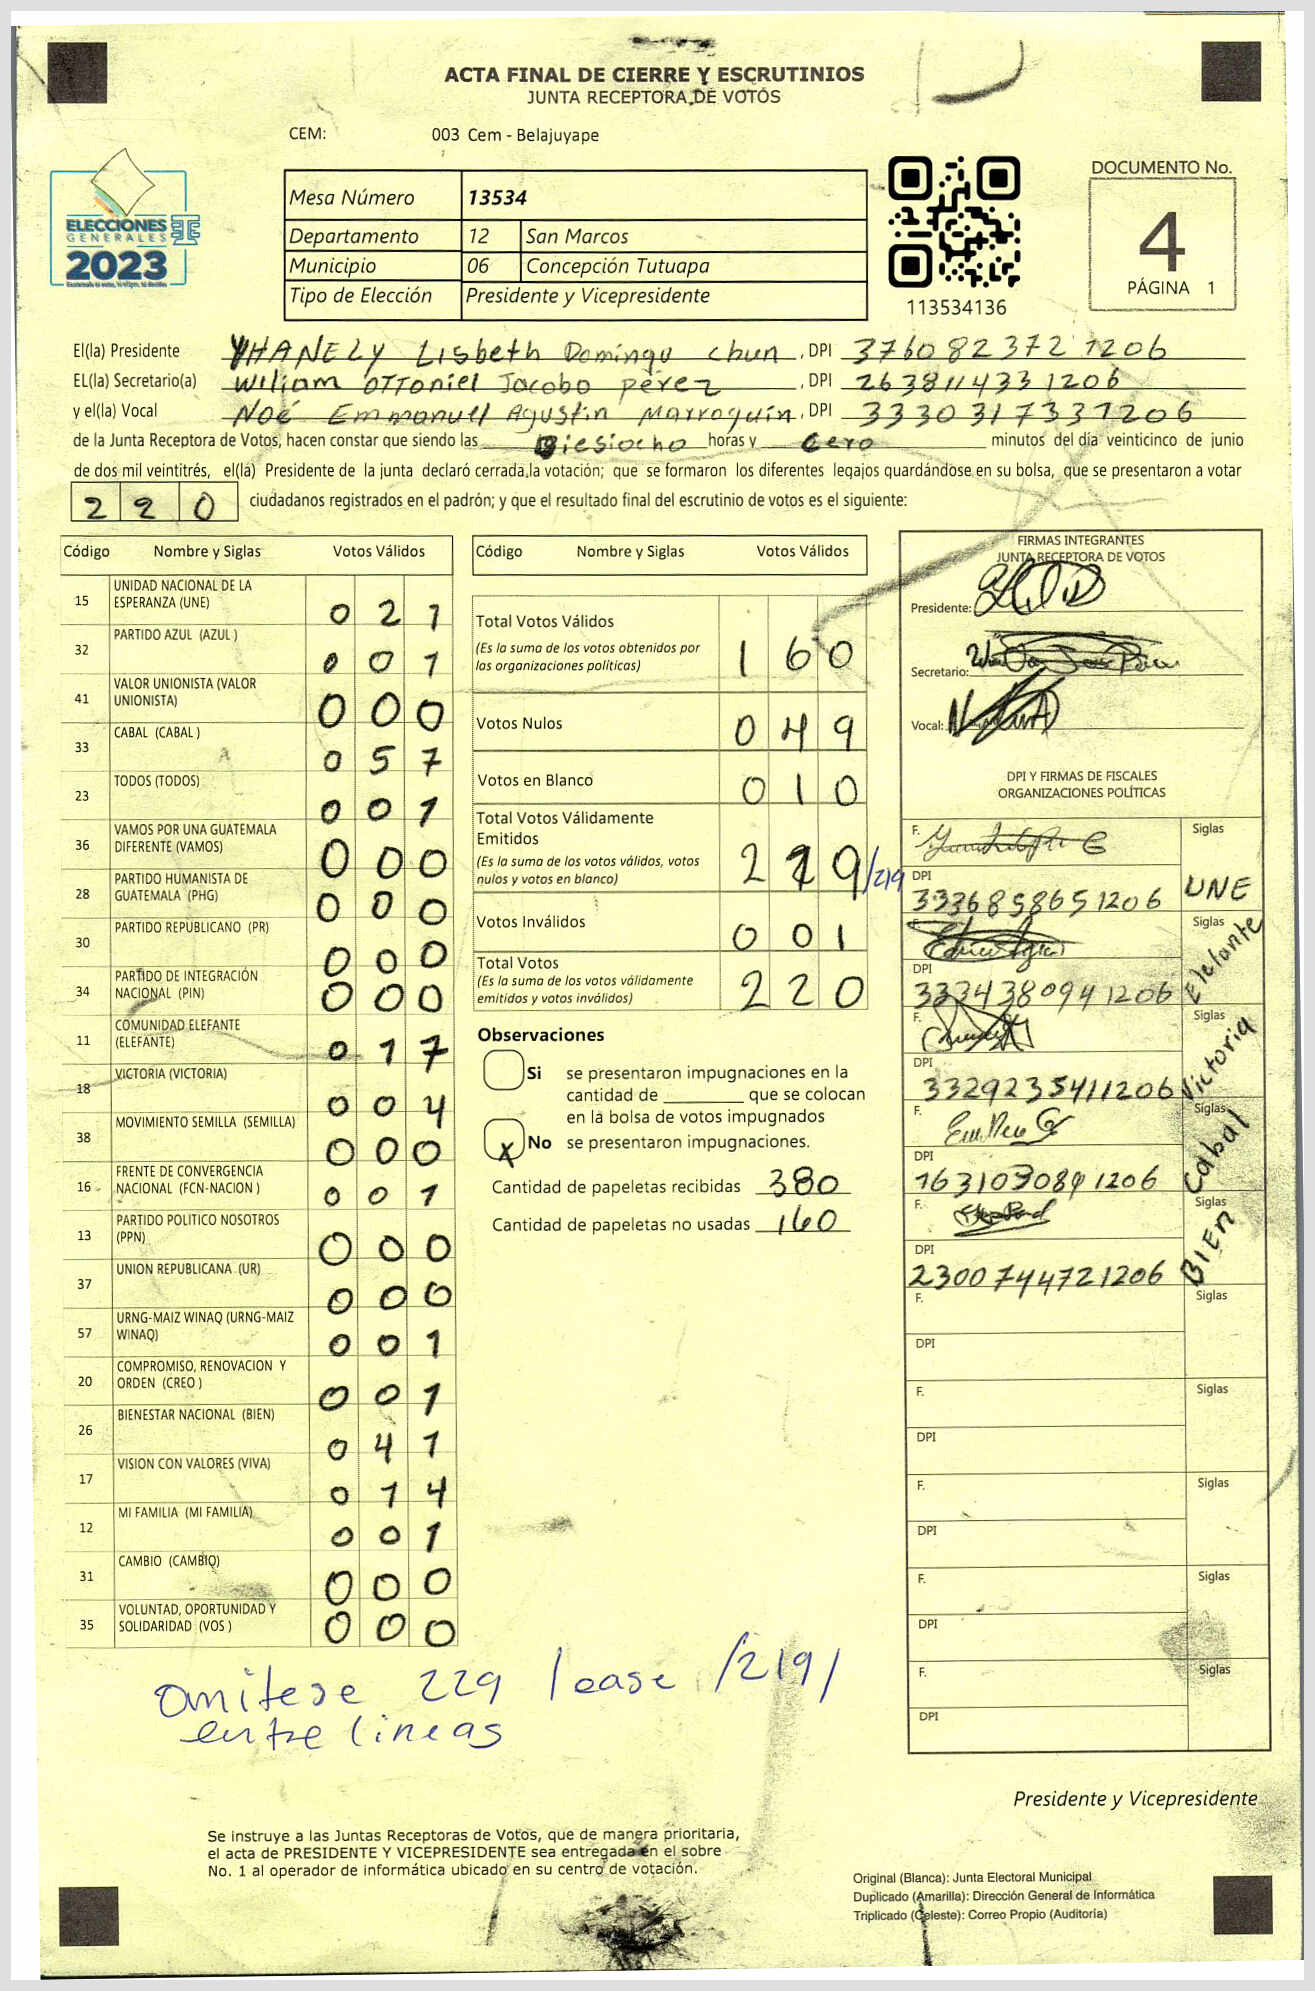 ACTA FINAL DE CIERRE Y ESCRUTINIOS
JUNTA RECEPTORA DE VOTOS
CEM: 003 Cem - Belajuyape
ELECCIONES
GENERALES
2023
Mesa Número 13534
Departamento 12 San Marcos
Municipio 06 Concepción Tutuapa
Tipo de Elección Presidente y Vicepresidente
113534136
DOCUMENTO No.
4
PÁGINA 1
El(la) Presidente YHANELY Lisbeth Domingo Chun, DPI 3760823721206
EL(la) Secretario(a) Wiliam OTTONIEL Jacobo pérez, DPI 2638114331206
y el(la) Vocal Noé Emmanuel Agustin Marroquín, DPI 3330317331206
de la Junta Receptora de Votos, hacen constar que siendo las Diesiocho horas y cero minutos del día veinticinco de junio
de dos mil veintitrés, el(la) Presidente de la junta declaró cerrada la votación; que se formaron los diferentes legajos quardándose en su bolsa, que se presentaron a votar
220 ciudadanos registrados en el padrón; y que el resultado final del escrutinio de votos es el siguiente:
Código Nombre y Siglas Votos Válidos
15 UNIDAD NACIONAL DE LA ESPERANZA (UNE) 021
32 PARTIDO AZUL (AZUL ) 001
41 VALOR UNIONISTA (VALOR UNIONISTA) 000
33 CABAL (CABAL ) 057
23 TODOS (TODOS) 001
36 VAMOS POR UNA GUATEMALA DIFERENTE (VAMOS) 000
28 PARTIDO HUMANISTA DE GUATEMALA (PHG) 000
30 PARTIDO REPUBLICANO (PR) 000
34 PARTIDO DE INTEGRACIÓN NACIONAL (PIN) 000
11 COMUNIDAD ELEFANTE (ELEFANTE) 017
18 VICTORIA (VICTORIA) 004
38 MOVIMIENTO SEMILLA (SEMILLA) 000
16 FRENTE DE CONVERGENCIA NACIONAL (FCN-NACION ) 001
13 PARTIDO POLITICO NOSOTROS (PPN) 000
37 UNION REPUBLICANA (UR) 000
57 URNG-MAIZ WINAQ (URNG-MAIZ WINAQ) 001
20 COMPROMISO, RENOVACION Y ORDEN (CREO ) 001
26 BIENESTAR NACIONAL (BIEN) 041
17 VISION CON VALORES (VIVA) 014
12 MI FAMILIA (MI FAMILIA) 001
31 CAMBIO (CAMBIO) 000
35 VOLUNTAD, OPORTUNIDAD Y SOLIDARIDAD (VOS ) 000
Código Nombre y Siglas Votos Válidos
Total Votos Válidos 160
(Es la suma de los votos obtenidos por
las organizaciones políticas)
Votos Nulos 049
Votos en Blanco 010
Total Votos Válidamente
Emitidos
(Es la suma de los votos válidos, votos
nulos y votos en blanco) 229 /219
Votos Inválidos 001
Total Votos
(Es la suma de los votos válidamente
emitidos y votos inválidos) 220
Observaciones
Si se presentaron impugnaciones en la
cantidad de ________ que se colocan
en la bolsa de votos impugnados
X No se presentaron impugnaciones.
Cantidad de papeletas recibidas 380
Cantidad de papeletas no usadas 160
FIRMAS INTEGRANTES
JUNTA RECEPTORA DE VOTOS
Presidente:
Secretario:
Vocal:
DPI Y FIRMAS DE FISCALES
ORGANIZACIONES POLÍTICAS
F. Siglas
DPI 3336858651206 UNE
F. Siglas
DPI 3334380941206 Elelante
F. Siglas
DPI 3329235411206 Victoria
F. Siglas
DPI 1631030891206 Cabal
F. Siglas
DPI 2300744721206 BIEN
F. Siglas
DPI
F. Siglas
DPI
F. Siglas
DPI
F. Siglas
DPI
F. Siglas
DPI
omitese 229 lease /219/
entre lineas
Presidente y Vicepresidente
Se instruye a las Juntas Receptoras de Votos, que de manera prioritaria,
el acta de PRESIDENTE Y VICEPRESIDENTE sea entregada en el sobre
No. 1 al operador de informática ubicado en su centro de votación.
Original (Blanca): Junta Electoral Municipal
Duplicado (Amarilla): Dirección General de Informática
Triplicado (Celeste): Correo Propio (Auditoría)